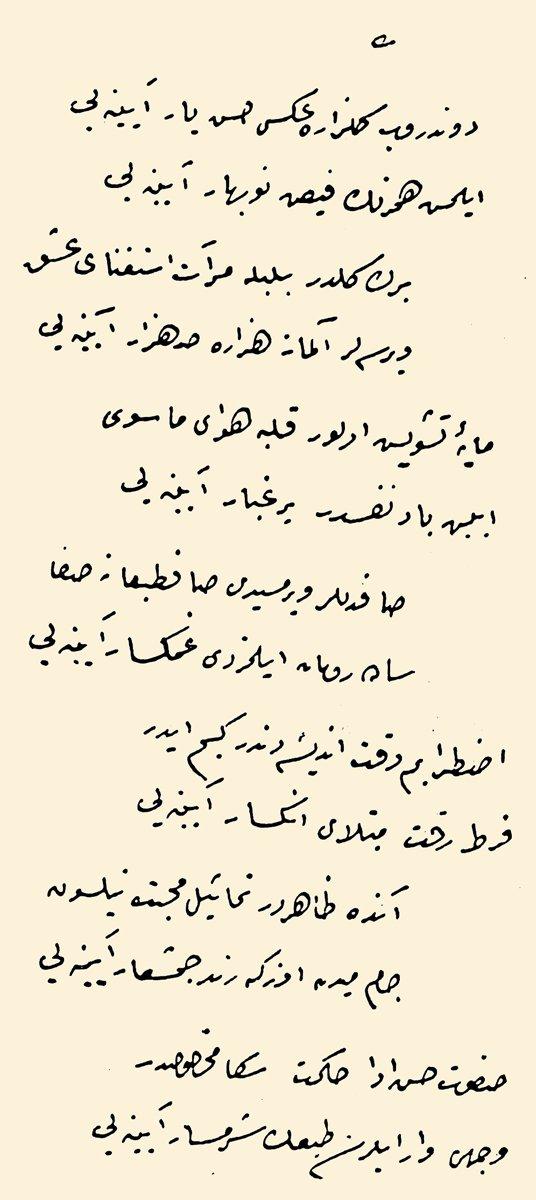 دوندروب گلزاره عکس حسن یار آیینه یی
ایلمش همرنك فیض نوبهار آیینه یی
برك گلدر بلبله مرآت استغنای عشق
ویرسه لر آلماز هزاره صد هزار آیینه یی
مایۀ تشویش اولور قلبه هوای ماسوی
ایلین باد نفسدر پر غبار آیینه یی
صافدللر ویرمسیدی صاف طبعانه صفا
ساده رویان ایلمزدی غمگسار آیینه یی
اضطرابم دقت اندیشه دندر کیم ایدر
فرط رقت مبتلای انکسار آیینه یی
آنده ظاهردر تماثیل محبت نیلسون
جام میدن اوزکه رند جمشعار آیینه یی
صنعت حسن ادا حکمت سکا مخصوصدر
وجهی وار ایلرسه طبعك شرمسار آیینه یی